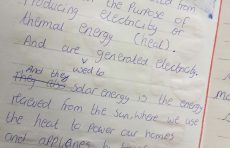 from
producing electricity or
thermal energy (heat).
And are generated electricity.
And they used to
They also solar energy is the energy
recieved from the sun, where we use
the heat to power our homes
and appliances